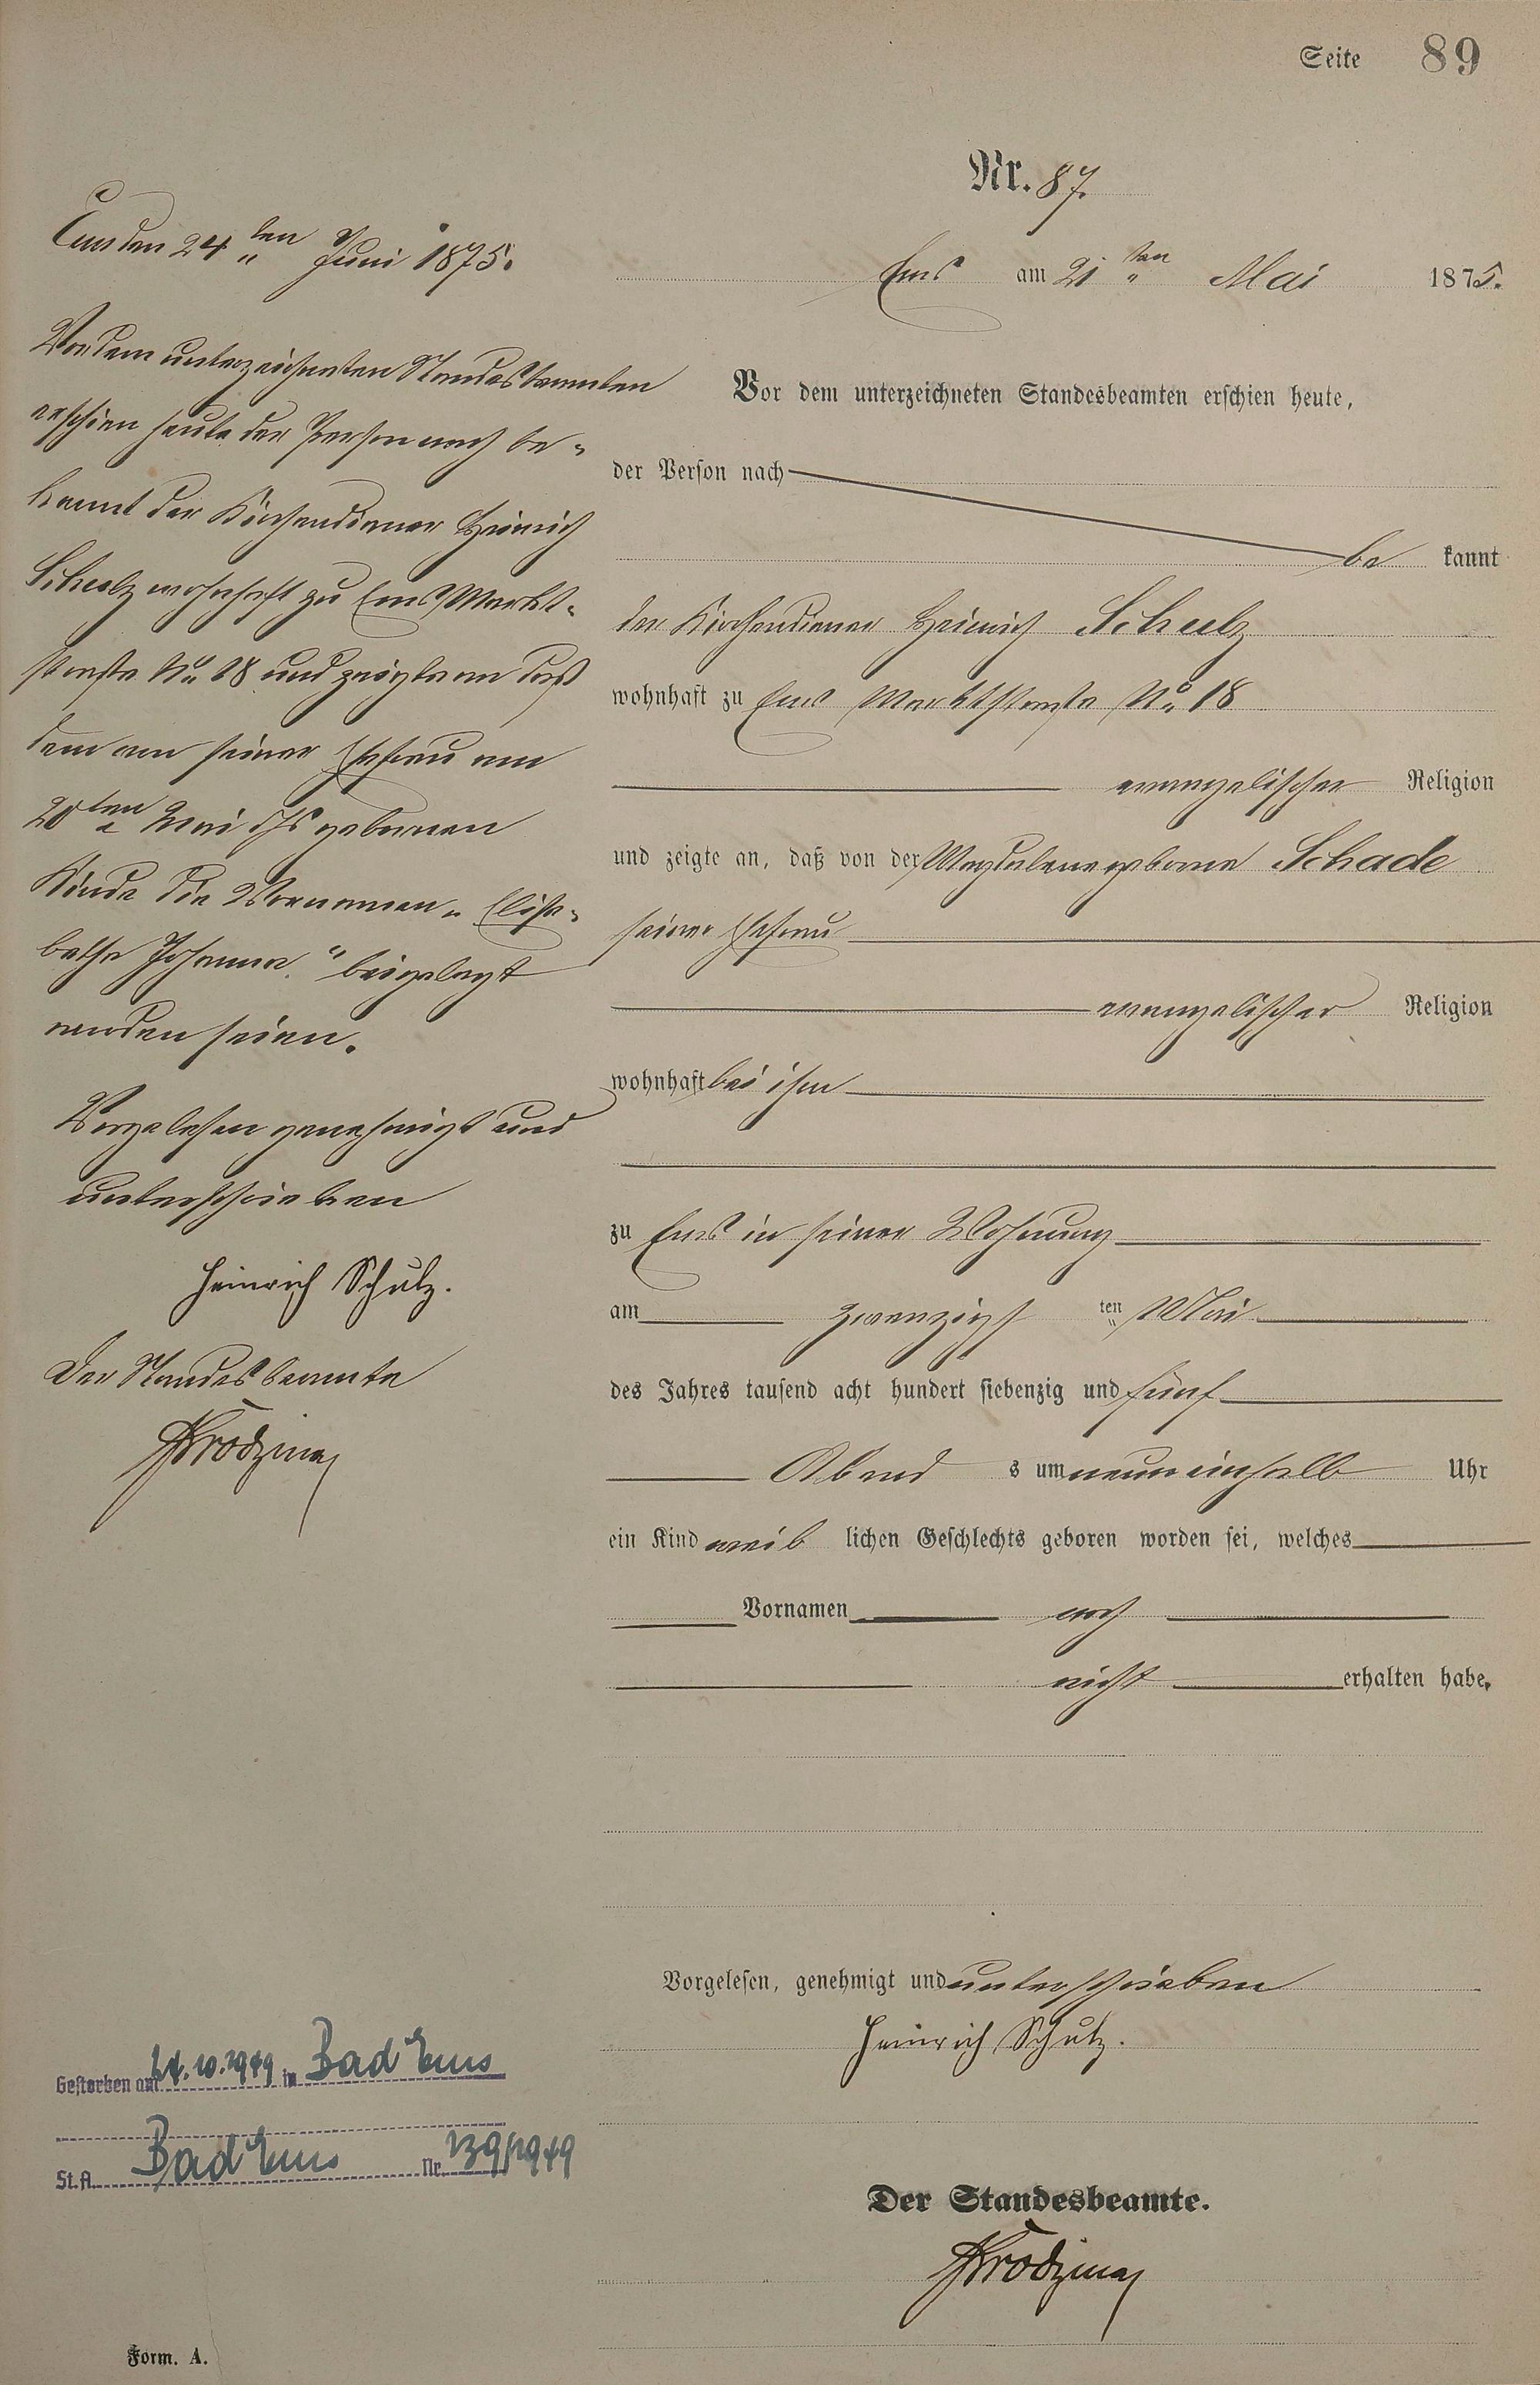 Seite 89
Nr. 87.
Ems am 21ten Mai 1875.
Vor dem unterzeichneten Standesbeamten erschien heute,
der Person nach
be kannt
der Kirchendiener Heinrich Schulz
wohnhaft zu Ems Marktstraße No. 18
evangelischer Religion
und zeigte an, daß von der Magdalene geborne Schade
seiner Ehefrau
evangelischer Religion
wohnhaft bei ihm
zu Ems in seiner Wohnung
am zwanzigsten Mai
des Jahres tausend acht hundert siebenzig und fünf
Abend s um neun einhalb Uhr
ein Kind weib lichen Geschlechts geboren worden sei, welches
Vornamen noch
nicht erhalten habe.
Vorgelesen, genehmigt und unterschrieben
Heinrich Schulz.
Der Standesbeamte.
Ems den 24ten Juni 1875.
Vor dem unterzeichneten Standesbeamten
erschien heute der Person nach be=
kannt der Kirchendiener Heinrich
Schulz wohnhaft zu Ems Markt=
straße No. 18 und zeigte an daß
dem von seiner Ehefrau am
20ten Mai d Js geborenen
Kinde die Vornamen „Elisa=
betha Johanna" beigelegt
worden seien.
Vorgelesen genehmigt und
unterschrieben
Heinrich Schulz.
Der Standesbeamte
Gestorben am 24.10.1949 in Bad Ems
St.A. Bad Ems Nr. 139/1949
Form. A.